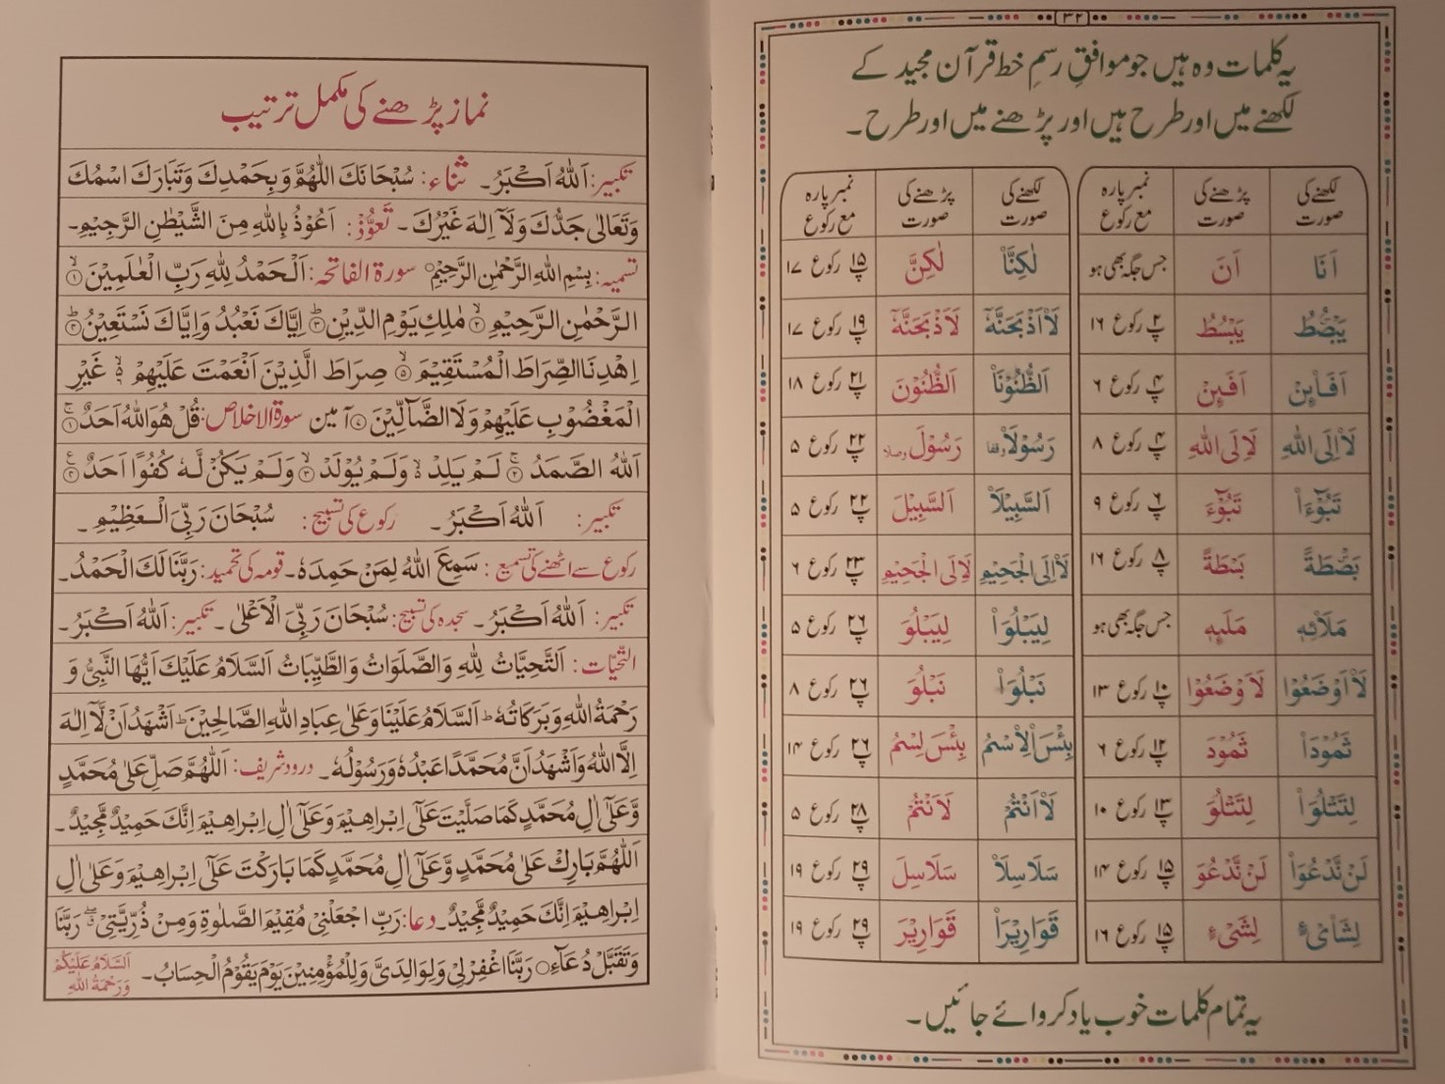 ۳۲
یہ کلمات وہ ہیں جو موافقِ رسمِ خط قرآن مجید کے
لکھنے میں اور طرح ہیں اور پڑھنے میں اور طرح۔
لکھنے کی صورت پڑھنے کی صورت نمبر پارہ مع رکوع
اَنَا اَنَ جس جگہ بھی ہو
یَبْصُۜطُ یَبْسُطُ پ۲ رکوع ۱۶
اَفَا۠ئِنْ اَفَئِنْ پ۴ رکوع ۶
لَا۠اِلَی اللّٰهِ لَاِلَی اللّٰهِ پ۴ رکوع ۸
تَبُوْٓءَا۠ تَبُوْٓءَ پ۶ رکوع ۹
بَصْۜطَةً بَسْطَةً پ۸ رکوع ۱۶
مَلَا۠ئِهٖ مَلَئِهٖ جس جگہ بھی ہو
لَا۠اَوْضَعُوْا لَاَوْضَعُوْا پ۱۰ رکوع ۱۳
ثَمُوْدَا۠ ثَمُوْدَ پ۱۲ رکوع ۶
لِتَتْلُوَا۠ لِتَتْلُوَ پ۱۳ رکوع ۱۰
لَنْ نَّدْعُوَا۠ لَنْ نَّدْعُوَ پ۱۵ رکوع ۱۴
لِشَا۠یْءٍ لِشَیْءٍ پ۱۵ رکوع ۱۶
لکھنے کی صورت پڑھنے کی صورت نمبر پارہ مع رکوع
لٰکِنَّا۠ لٰکِنَّ پ۱۵ رکوع ۱۷
لَا۠اَذْبَحَنَّهٗٓ لَاَذْبَحَنَّهٗٓ پ۱۹ رکوع ۱۷
اَلظُّنُوْنَا۠ اَلظُّنُوْنَ پ۲۱ رکوع ۱۸
رَسُوْلَا۠ وقفا رَسُوْلَ وصلا پ۲۲ رکوع ۵
اَلسَّبِیْلَا۠ اَلسَّبِیْلَ پ۲۲ رکوع ۵
لَا۠اِلَی الْجَحِیْمِ لَاِلَی الْجَحِیْمِ پ۲۳ رکوع ۶
لِیَبْلُوَا۠ لِیَبْلُوَ پ۲۶ رکوع ۵
نَبْلُوَا۠ نَبْلُوَ پ۲۶ رکوع ۸
بِئْسَ الِاسْمُ بِئْسَ لِسْمُ پ۲۶ رکوع ۱۴
لَا۠اَنْتُمْ لَاَنْتُمْ پ۲۸ رکوع ۵
سَلَاسِلَا۠ سَلَاسِلَ پ۲۹ رکوع ۱۹
قَوَارِیْرَا۠ قَوَارِیْرَ پ۲۹ رکوع ۱۹
یہ تمام کلمات خوب یاد کروائے جائیں۔
نماز پڑھنے کی مکمل ترتیب
تکبیر: اَللّٰهُ اَکْبَرُ۔ ثناء: سُبْحَانَكَ اللّٰهُمَّ وَبِحَمْدِكَ وَتَبَارَكَ اسْمُكَ
وَتَعَالٰی جَدُّكَ وَلَآ اِلٰهَ غَیْرُكَ۔ تعوّذ: اَعُوْذُ بِاللّٰهِ مِنَ الشَّیْطٰنِ الرَّجِیْمِ۔
تسمیہ: بِسْمِ اللّٰهِ الرَّحْمٰنِ الرَّحِیْمِ سورۃ الفاتحہ: اَلْحَمْدُ لِلّٰهِ رَبِّ الْعٰلَمِیْنَ ۙ۱
الرَّحْمٰنِ الرَّحِیْمِ ۙ۲ مٰلِكِ یَوْمِ الدِّیْنِ ؕ۳ اِیَّاكَ نَعْبُدُ وَاِیَّاكَ نَسْتَعِیْنُ ؕ۴
اِهْدِنَا الصِّرَاطَ الْمُسْتَقِیْمَ ۙ۵ صِرَاطَ الَّذِیْنَ اَنْعَمْتَ عَلَیْهِمْ ۙ۶ غَیْرِ
الْمَغْضُوْبِ عَلَیْهِمْ وَلَا الضَّآلِّیْنَ ۷ آمین سورۃ الاخلاص: قُلْ هُوَ اللّٰهُ اَحَدٌ ۚ۱
اَللّٰهُ الصَّمَدُ ۚ۲ لَمْ یَلِدْ ۙ وَلَمْ یُوْلَدْ ۙ۳ وَلَمْ یَکُنْ لَّهٗ کُفُوًا اَحَدٌ ۴
تکبیر: اَللّٰهُ اَکْبَرُ۔ رکوع کی تسبیح: سُبْحَانَ رَبِّیَ الْعَظِیْمِ۔
رکوع سے اٹھنے کی تسمیع: سَمِعَ اللّٰهُ لِمَنْ حَمِدَهٗ۔ قومہ کی تحمید: رَبَّنَا لَكَ الْحَمْدُ۔
تکبیر: اَللّٰهُ اَکْبَرُ۔ سجدہ کی تسبیح: سُبْحَانَ رَبِّیَ الْاَعْلٰی۔ تکبیر: اَللّٰهُ اَکْبَرُ۔
التحیّات: اَلتَّحِیَّاتُ لِلّٰهِ وَالصَّلَوَاتُ وَالطَّیِّبَاتُ اَلسَّلَامُ عَلَیْكَ اَیُّهَا النَّبِیُّ وَ
رَحْمَةُ اللّٰهِ وَبَرَکَاتُهٗ ؕ اَلسَّلَامُ عَلَیْنَا وَعَلٰی عِبَادِ اللّٰهِ الصَّالِحِیْنَ ؕ اَشْهَدُ اَنْ لَّآ اِلٰهَ
اِلَّا اللّٰهُ وَاَشْهَدُ اَنَّ مُحَمَّدًا عَبْدُهٗ وَرَسُوْلُهٗ۔ درود شریف: اَللّٰهُمَّ صَلِّ عَلٰی مُحَمَّدٍ
وَّعَلٰٓی اٰلِ مُحَمَّدٍ کَمَا صَلَّیْتَ عَلٰٓی اِبْرَاهِیْمَ وَعَلٰٓی اٰلِ اِبْرَاهِیْمَ اِنَّكَ حَمِیْدٌ مَّجِیْدٌ۔
اَللّٰهُمَّ بَارِكْ عَلٰی مُحَمَّدٍ وَّعَلٰٓی اٰلِ مُحَمَّدٍ کَمَا بَارَکْتَ عَلٰٓی اِبْرَاهِیْمَ وَعَلٰٓی اٰلِ
اِبْرَاهِیْمَ اِنَّكَ حَمِیْدٌ مَّجِیْدٌ۔ دعا: رَبِّ اجْعَلْنِیْ مُقِیْمَ الصَّلٰوةِ وَمِنْ ذُرِّیَّتِیْ ۖ رَبَّنَا
وَتَقَبَّلْ دُعَآءِ ○ رَبَّنَا اغْفِرْ لِیْ وَلِوَالِدَیَّ وَلِلْمُؤْمِنِیْنَ یَوْمَ یَقُوْمُ الْحِسَابُ۔ اَلسَّلَامُ عَلَیْکُمْ
وَرَحْمَةُ اللّٰهِ